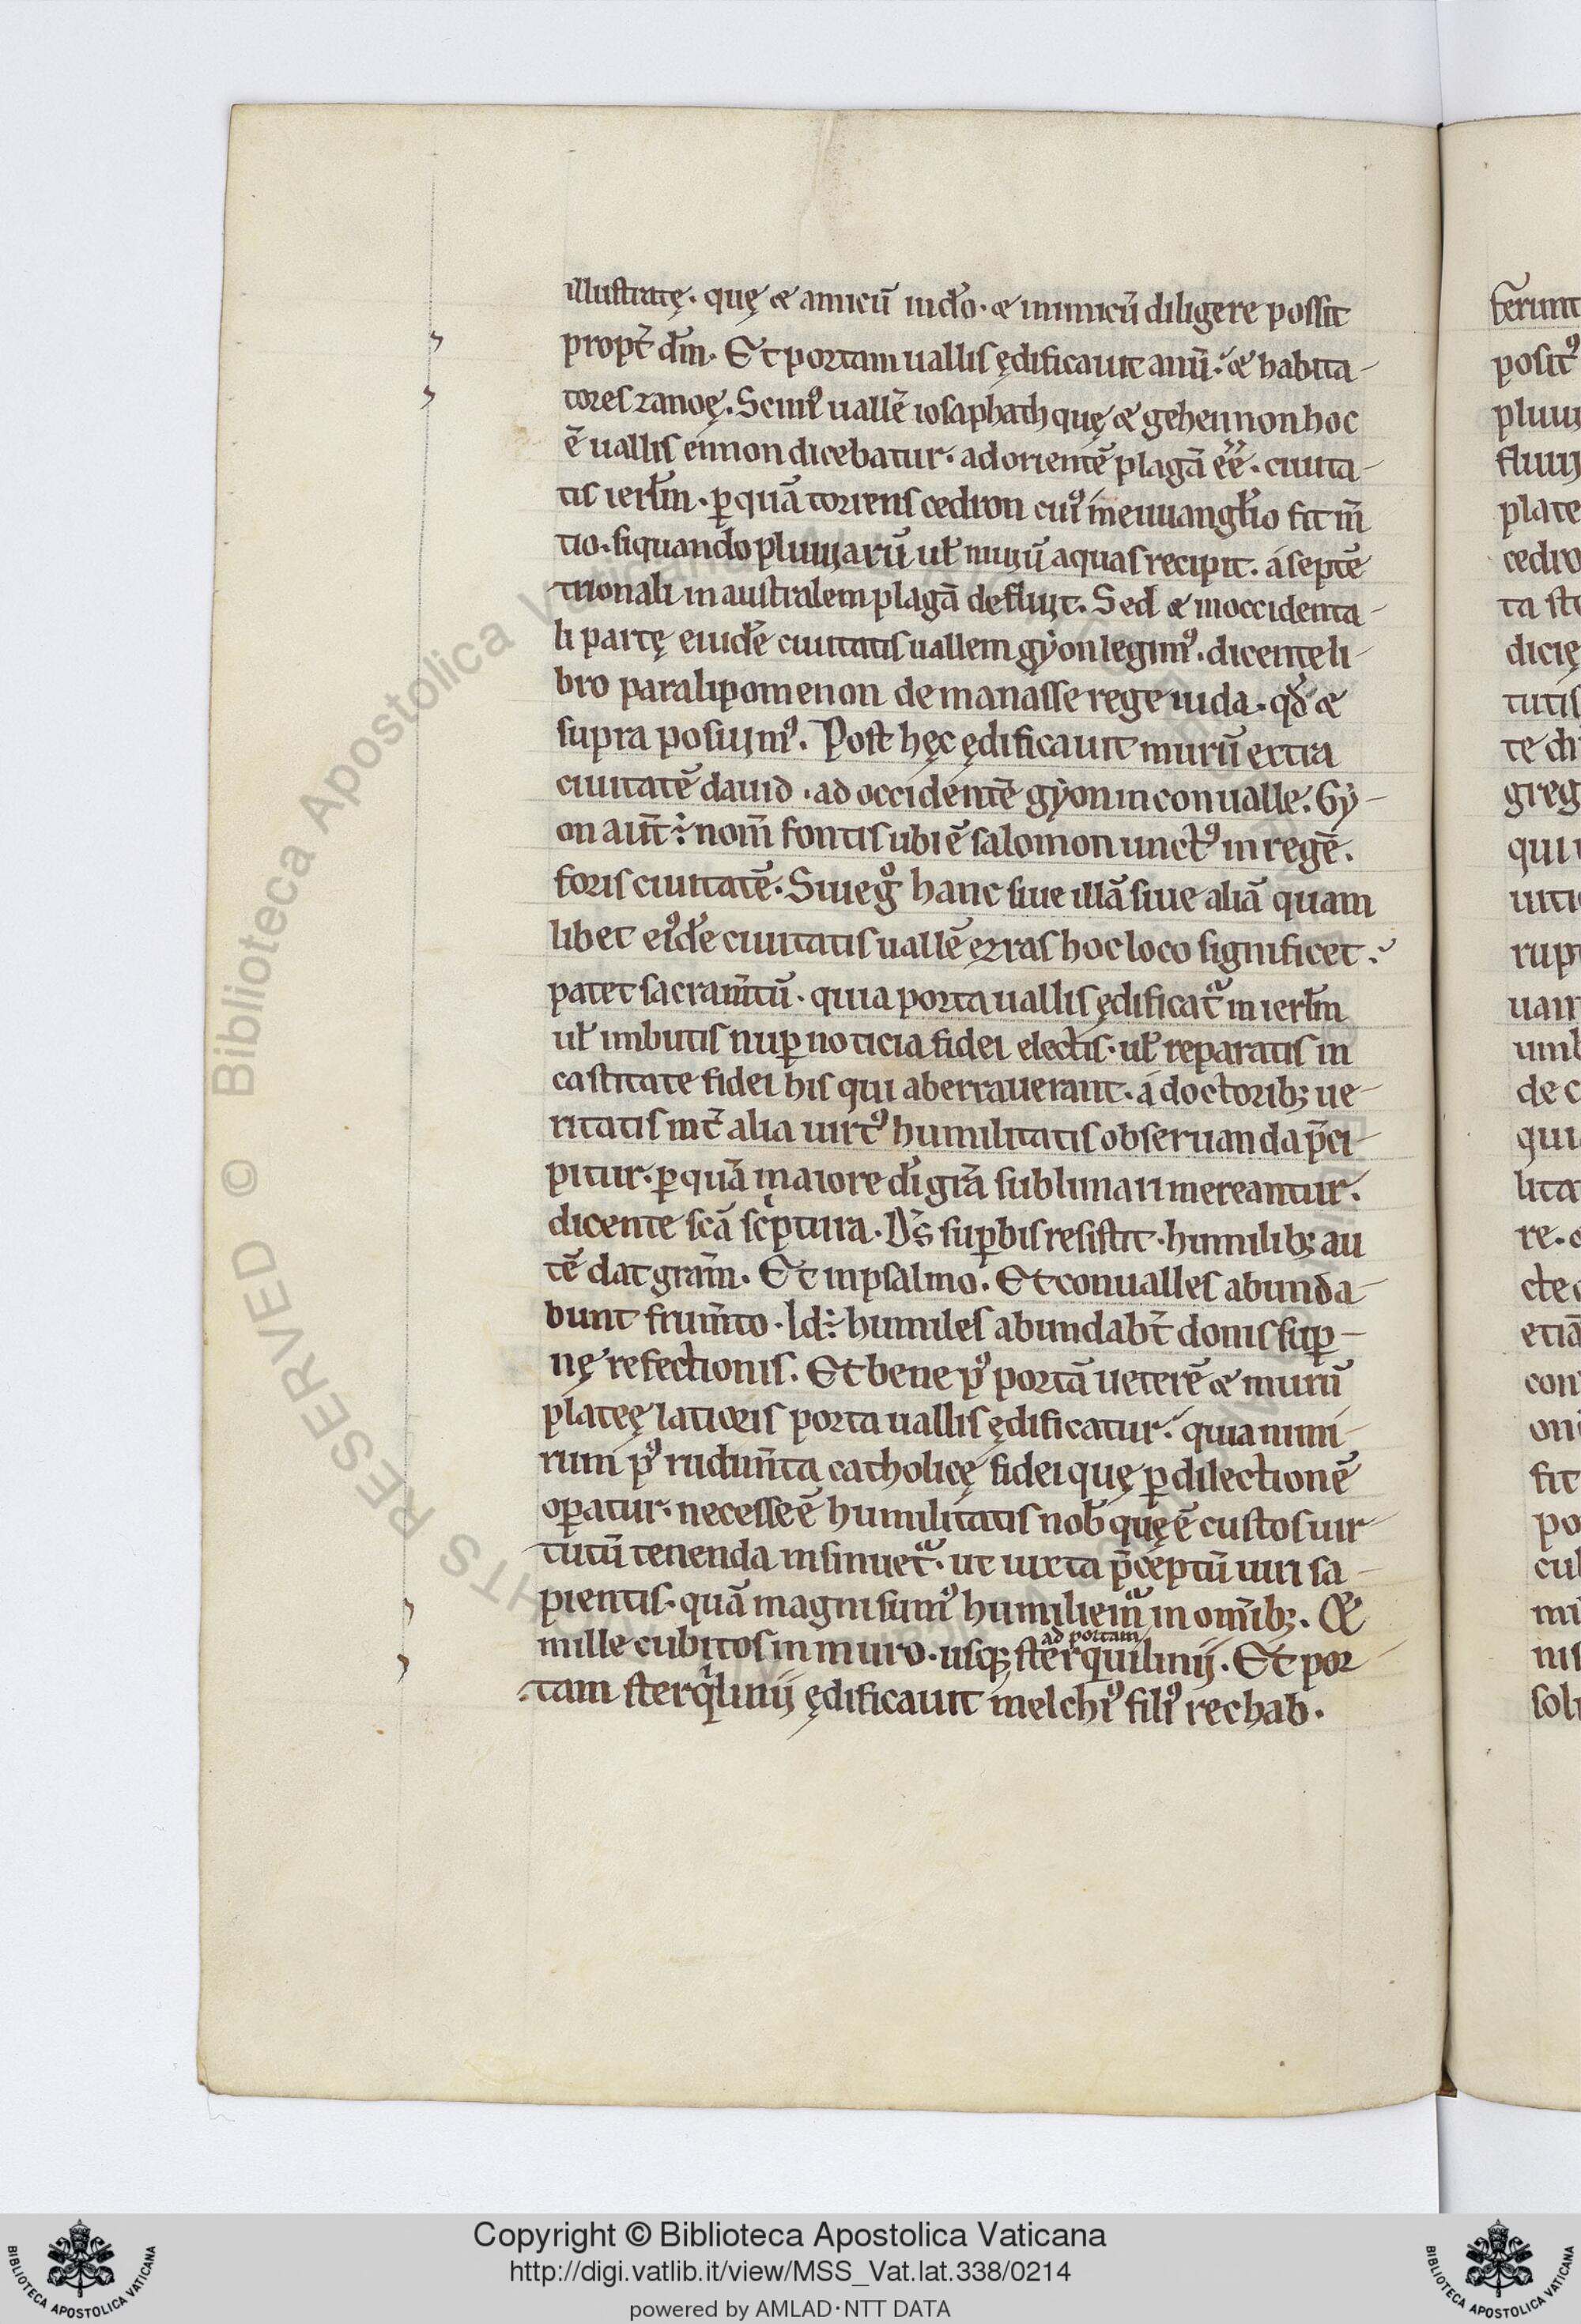 illustratę. quę & amicū indo̅. & inimicū diligere possit
propt̄ dm̄. Et portam uallis ędificauit anū. & habita-
tores zanoę. Scimꝰ uallē iosaphath quę & gehennon hoc
ē uallis ennon dicebatur. ad orientē plagā ēē. ciuita-
tis ierłm. ꝑ quā torrens cedron cuiꝰ in euuangłio fit m̄
tio. siquando pluuiarū uł niuiū aquas recipit. a septē
trionali in australem plagā defluit. Sed & in occidenta-
li partę eiusdē ciuitatis uallem gẏon legimꝰ. dicente li-
bro paralipomenon de manasse rege iuda. qđ &
supra posuimꝰ. Post hęc ędificauit murū extra
ciuitatē dauid. ad occidentē gẏon in conualle. Gẏ-
on aūt ÷ nom̄ fontis ubi ē salomon unctꝰ in regē.
foris ciuitatē. Siue gͦ hanc siue illā siue aliā quam
libet eiꝰdē ciuitatis uallē ezras hoc loco significet.
patet sacram̄tū. quia porta uallis ędificatᷓ in ierłm
uł imbutis nuꝑ noticia fidei electis. uł reparatis in
castitate fidei his qui aberrauerant. a doctoribꝫ ue-
ritatis int̄ alia uirtꝰ humilitatis obseruanda p̄ci-
pitur. ꝑ quā maiore dī gr̄a sublimari mereantur.
dicente scā scͥptura. Dś suꝑbis resistit. humilibꝫ au
tē dat gram̄. Et in psalmo. Et conualles abunda-
bunt frum̄to. Id ÷ humiles abundabt̄ donis suꝑ-
nę refectionis. Et bene pꝰ portā ueterē & murū
plateę latioris porta uallis ędificatur. quia nimi-
rum pꝰ rudim̄ta catholicę fidei quę ꝑ dilectionē
oꝑatur. necesse ē humilitatis nob̄ quę ē custos uir
tutū tenenda insinuetᷓ. ut iuxta p̄ceptū uiri sa-
pientis. quā magni sumꝰ humiliemᷓ in om̄ibꝫ. &
mille cubitos in muro. usqꝫ ad portam sterquilinij. Et por
tam sterqͥlinij ędificauit melchiꝰ filiꝰ rechab.
Copyright © Biblioteca Apostolica Vaticana
http://digi.vatlib.it/view/MSS_Vat.lat.338/0214
powered by AMLAD·NTT DATA